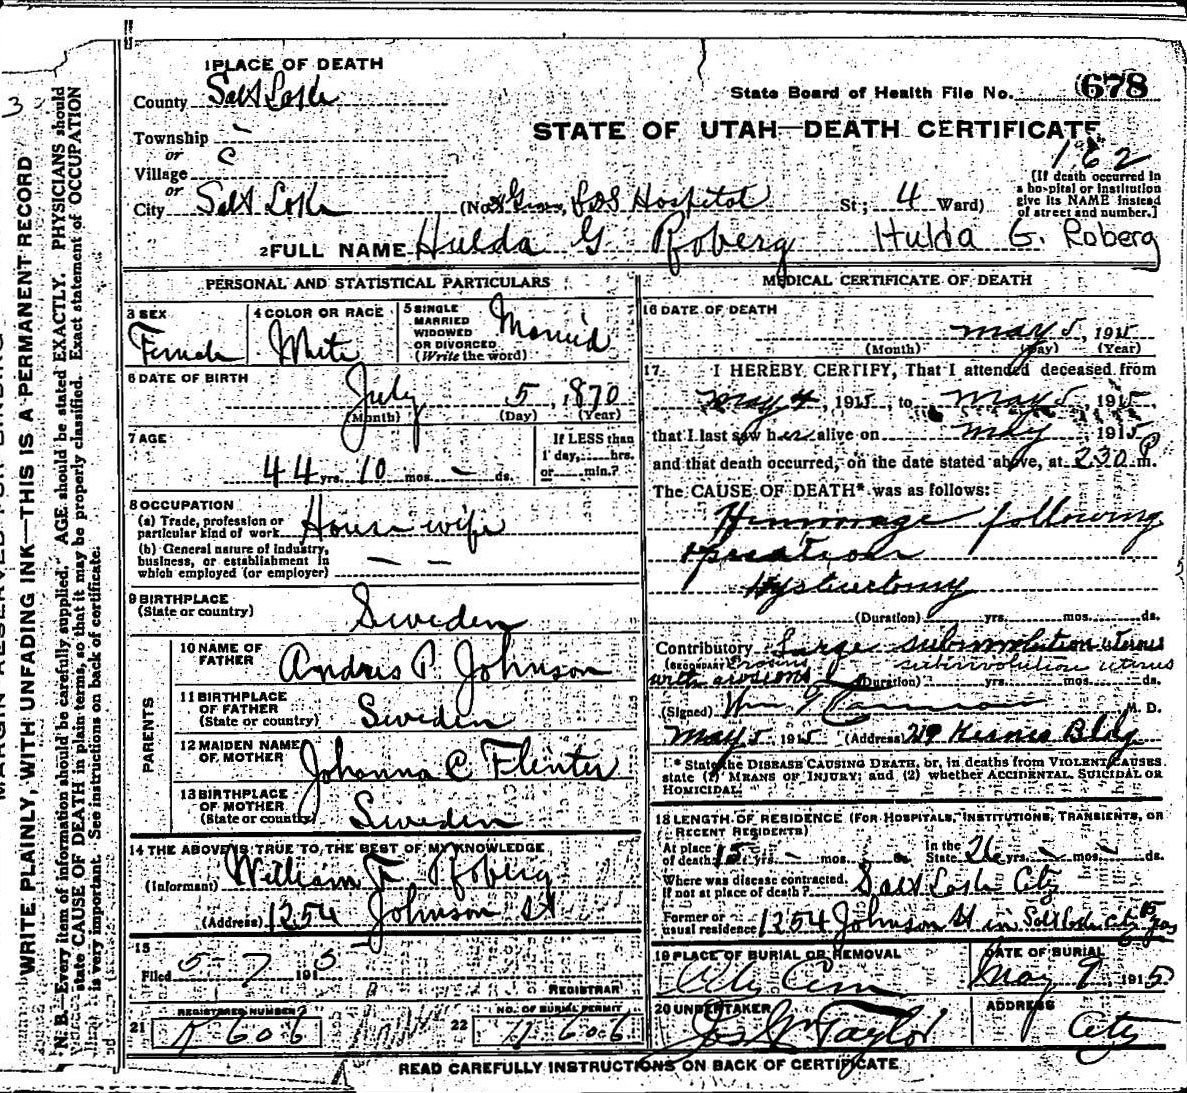 1 PLACE OF DEATH
County Salt Lake
State Board of Health File No. 678
Township
or
Village
or
City Salt Lake
STATE OF UTAH—DEATH CERTIFICATE
162
(No. LDS Hospital St; 4 Ward)
[If death occurred in
a hospital or institution
give its NAME instead
of street and number.]
2 FULL NAME Hulda G Roberg Hulda G. Roberg
PERSONAL AND STATISTICAL PARTICULARS
3 SEX
Female
4 COLOR OR RACE
White
5 SINGLE
MARRIED
WIDOWED
OR DIVORCED
(Write the word)
Married
6 DATE OF BIRTH
July 5, 1870
(Month) (Day) (Year)
7 AGE
44 yrs. 10 mos. — ds.
If LESS than
1 day, hrs.
or min.?
8 OCCUPATION
(a) Trade, profession or
particular kind of work House wife
(b) General nature of industry,
business, or establishment in
which employed (or employer) — —
9 BIRTHPLACE
(State or country)
Sweden
PARENTS
10 NAME OF
FATHER
Andres P. Johnson
11 BIRTHPLACE
OF FATHER
(State or country)
Sweden
12 MAIDEN NAME
OF MOTHER
Johanna C Flinter
13 BIRTHPLACE
OF MOTHER
(State or country)
Sweden
14 THE ABOVE IS TRUE TO THE BEST OF MY KNOWLEDGE
(Informant) William F Roberg
(Address) 1254 Johnson St
15
Filed 5-7 1915
REGISTRAR
REGISTERED NUMBER
21
606
NO. OF BURIAL PERMIT
22
606
MEDICAL CERTIFICATE OF DEATH
16 DATE OF DEATH
May 5, 1915
(Month) (Day) (Year)
17. I HEREBY CERTIFY, That I attended deceased from
May 4, 1915, to May 5, 1915,
that I last saw her alive on May 1915
and that death occurred, on the date stated above, at 230 P m.
The CAUSE OF DEATH* was as follows:
Hemmorage following
operation
Hysterectomy
(Duration) yrs. mos. ds.
Contributory Large subinvolution uterus
(SECONDARY) Erosions subinvolution uterus
with erosions (Duration) yrs. mos. ds.
(Signed) Wm T M. D.
May 5 1915 (Address) 219 Kearns Bldg
* State the DISEASE CAUSING DEATH, or, in deaths from VIOLENT CAUSES,
state (1) MEANS OF INJURY; and (2) whether ACCIDENTAL, SUICIDAL OR
HOMICIDAL.
18 LENGTH OF RESIDENCE (FOR HOSPITALS, INSTITUTIONS, TRANSIENTS, OR
RECENT RESIDENTS)
At place
of death 15 yrs. — mos. ds.
In the
State 26 yrs. — mos. ds.
Where was disease contracted,
if not at place of death? Salt Lake City
Former or
usual residence 1254 Johnson St in Salt Lake City 15 yrs
19 PLACE OF BURIAL OR REMOVAL
City Cem
DATE OF BURIAL
May 9 1915
20 UNDERTAKER
Jos Wm Taylor
ADDRESS
City
READ CAREFULLY INSTRUCTIONS ON BACK OF CERTIFICATE
3
WRITE PLAINLY, WITH UNFADING INK—THIS IS A PERMANENT RECORD
N. B.—Every item of information should be carefully supplied. AGE should be stated EXACTLY. PHYSICIANS should
state CAUSE OF DEATH in plain terms, so that it may be properly classified. Exact statement of OCCUPATION
is very important. See instructions on back of certificate.